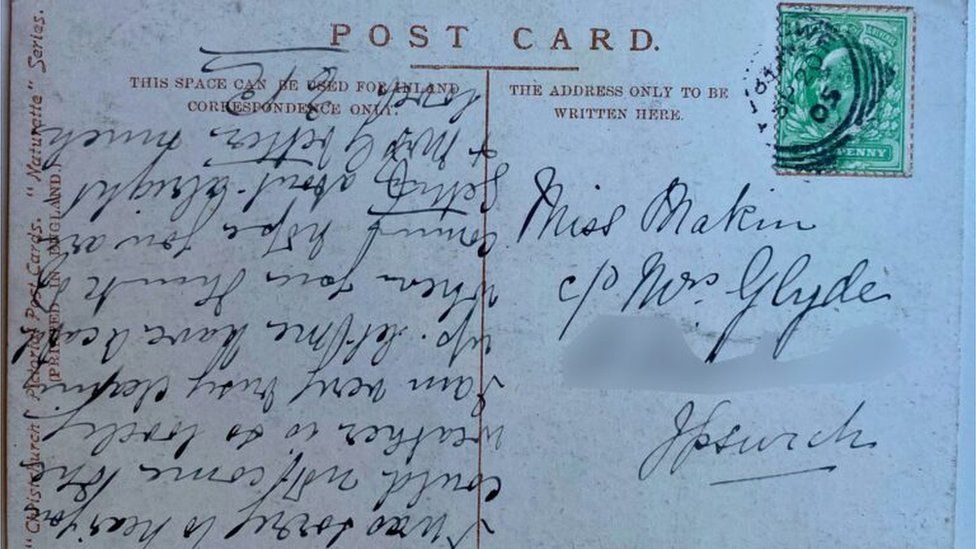 POST CARD.
THIS SPACE CAN BE USED FOR INLAND
CORRESPONDENCE ONLY.
THE ADDRESS ONLY TO BE
WRITTEN HERE.
PENNY
05
Miss Makin
c/o Mrs Glyde
Ipswich
I was sorry to hear you
could not come the
weather is so lovely
I am very busy cleaning
up. let me have a card
when you think of
coming hope you are
getting about alright
& Mrs G better. much
love
"Christchurch" Pictorial Post Cards. "Naturette" Series.
(PRINTED IN ENGLAND)